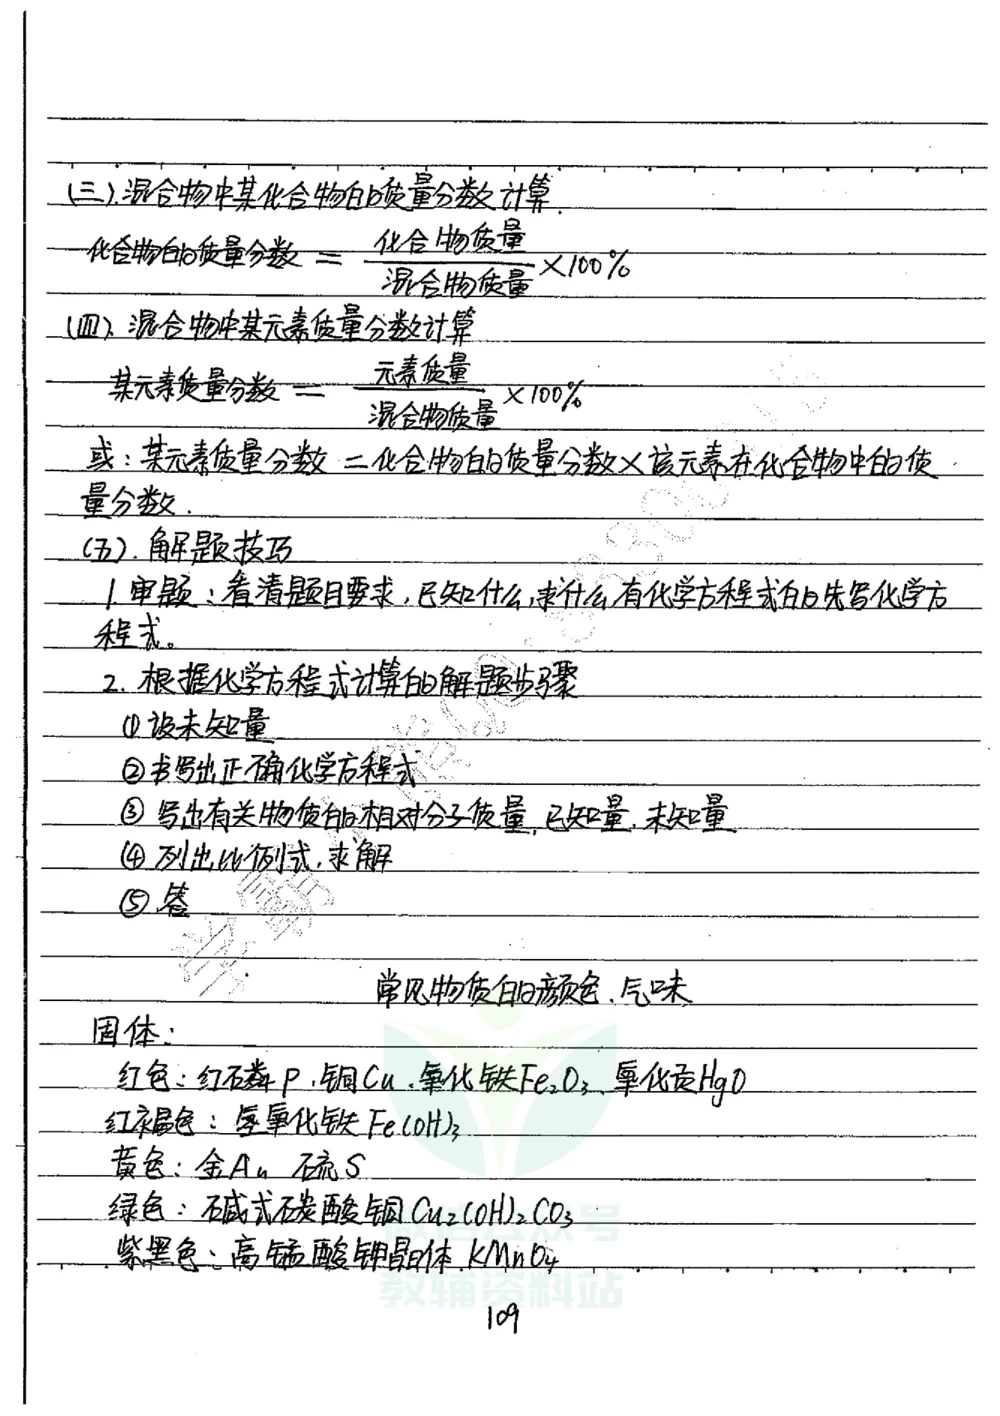 (三).混合物中某化合物的质量分数计算.
化合物的质量分数 = 化合物质量/混合物质量 ×100%
(四).混合物中某元素质量分数计算
某元素质量分数 = 元素质量/混合物质量 ×100%
或:某元素质量分数 = 化合物的质量分数×该元素在化合物中的质
量分数.
(五).解题技巧
1.审题:看清题目要求,已知什么,求什么,有化学方程式的先写化学方
程式。
2.根据化学方程式计算的解题步骤
①设未知量
②书写出正确化学方程式
③写出有关物质的相对分子质量,已知量,未知量
④列出比例式,求解
⑤答
常见物质的颜色、气味
固体:
红色:红磷P、铜Cu、氧化铁Fe₂O₃、氧化汞HgO
红褐色:氢氧化铁Fe(OH)₃
黄色:金Au 硫S
绿色:碱式碳酸铜Cu₂(OH)₂CO₃
紫黑色:高锰酸钾晶体.KMnO₄
微信公众号
教辅资料站
109